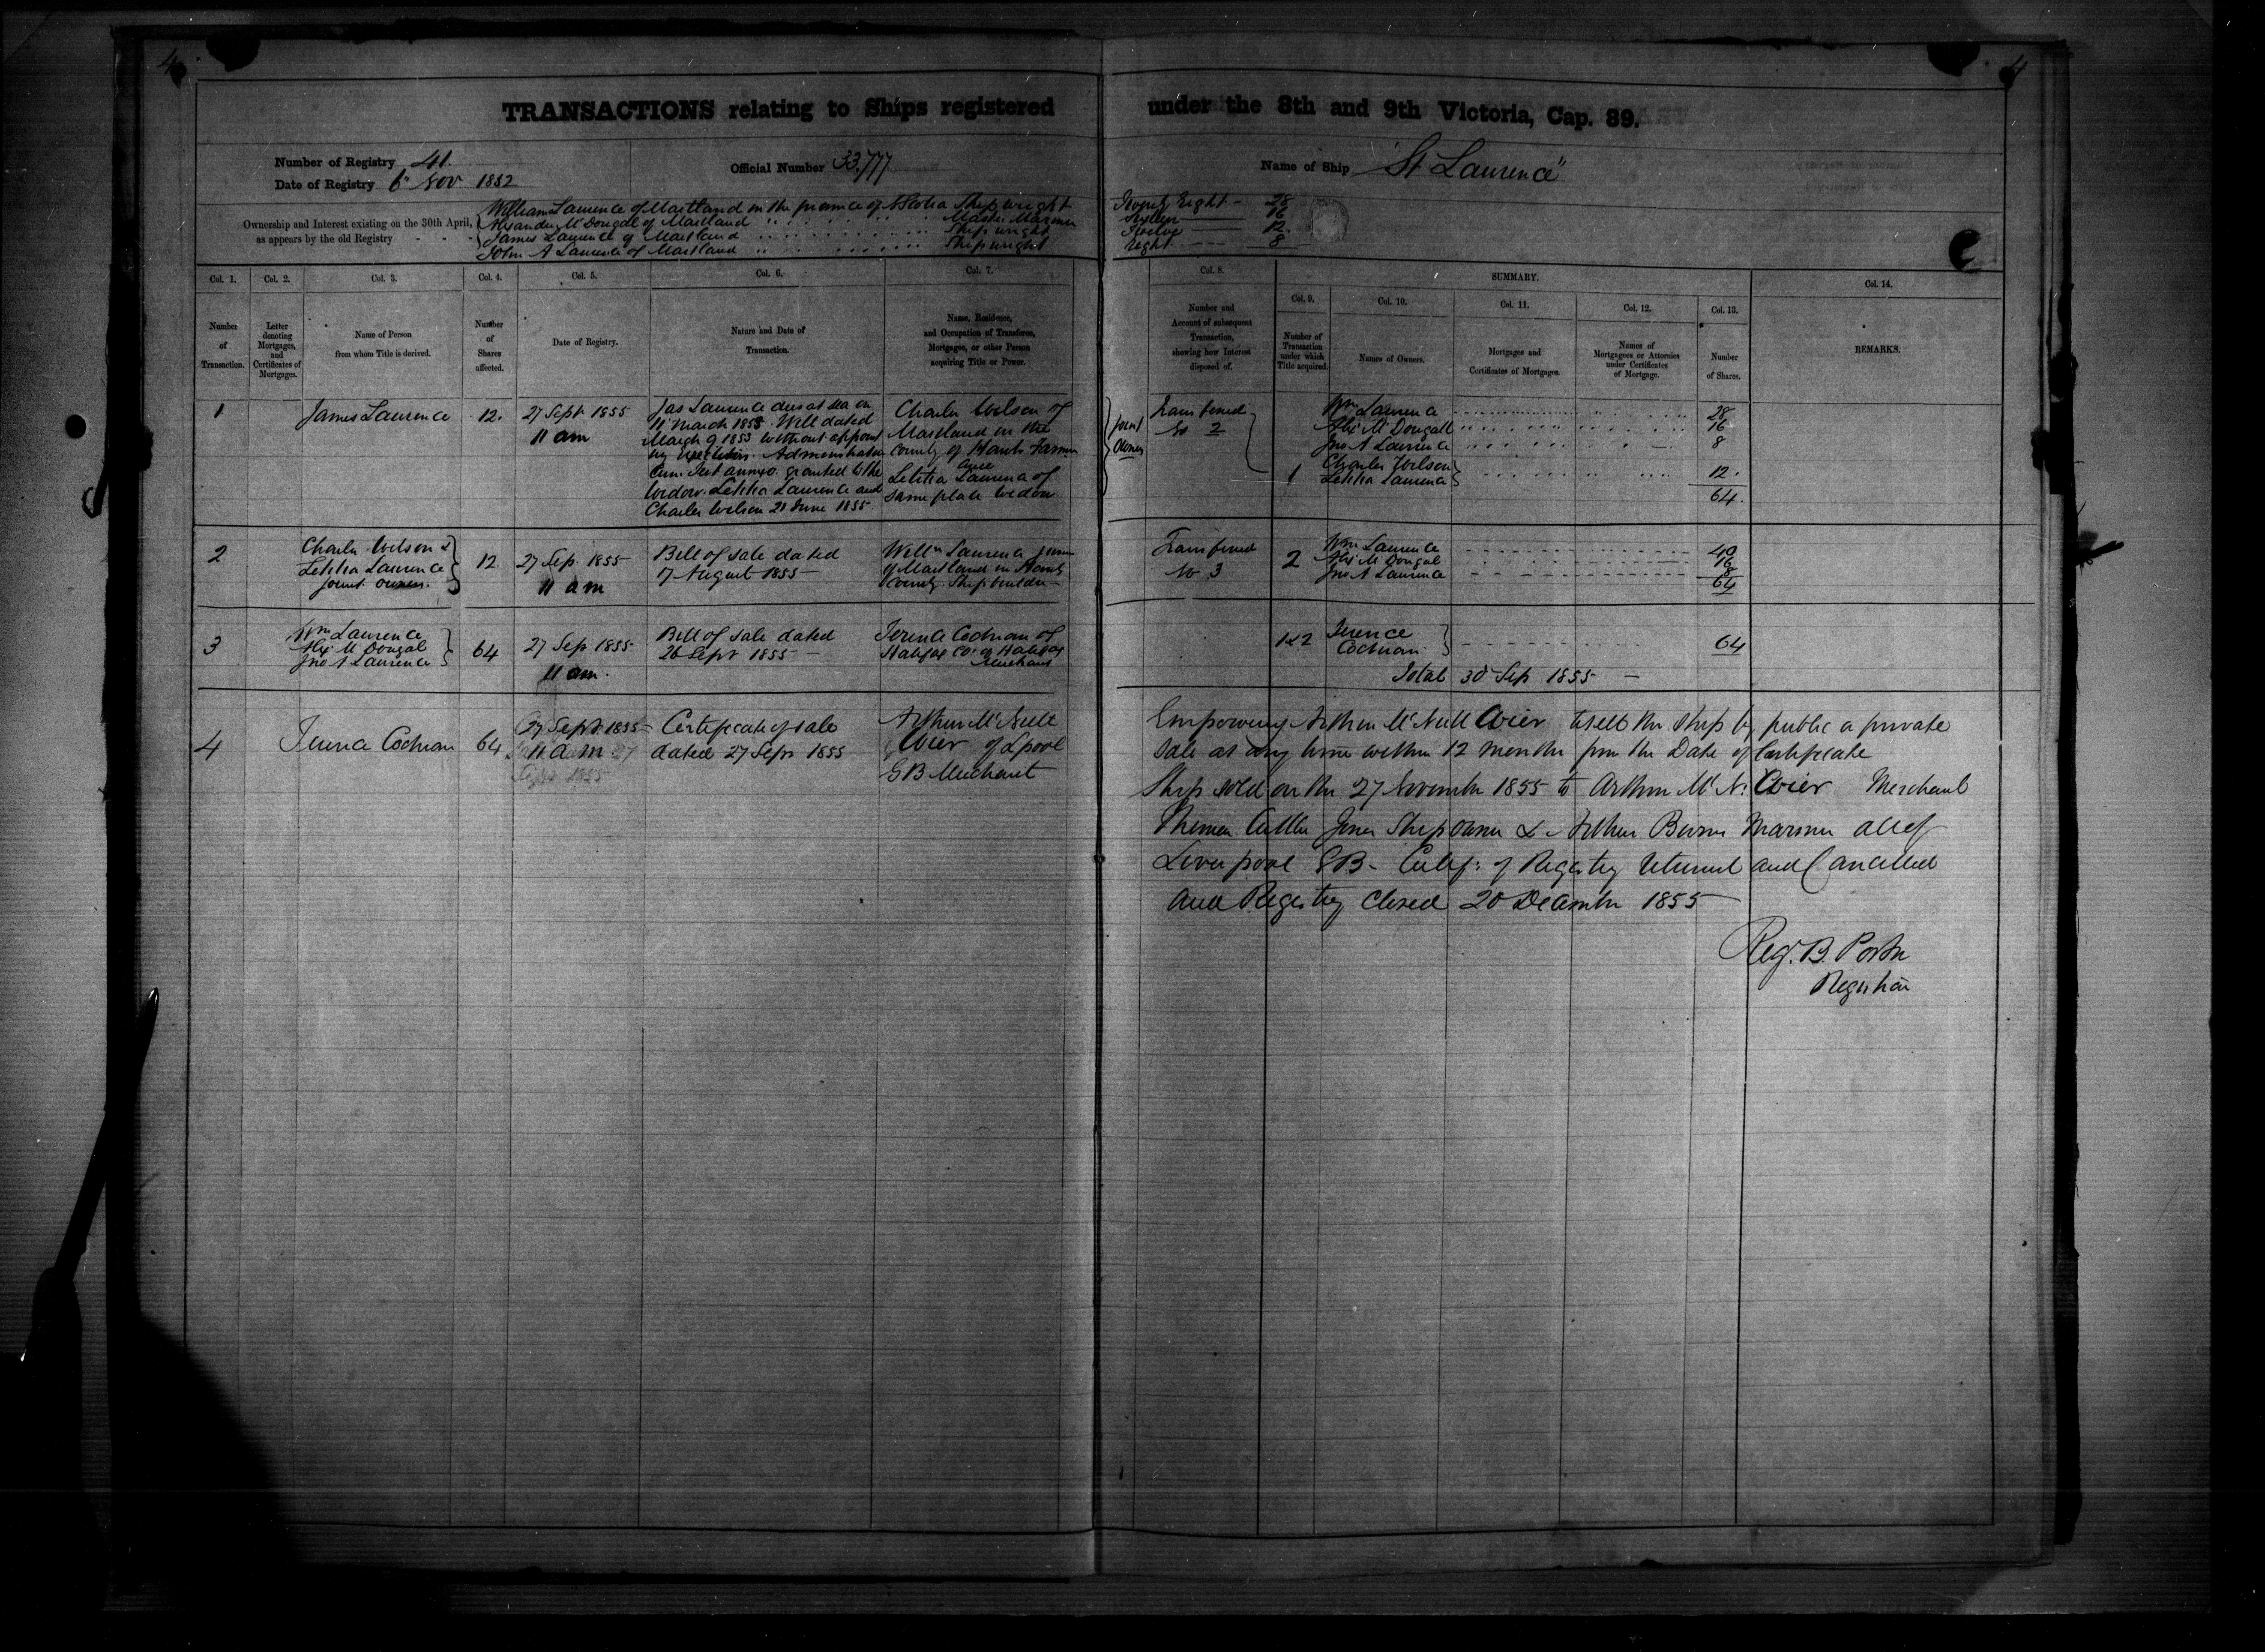 4
4
TRANSACTIONS relating to Ships registered under the 8th and 9th Victoria, Cap. 89.
Number of Registry 41.
Date of Registry 6th Nov 1852
Official Number 33.777
Name of Ship "St Laurence"
Ownership and Interest existing on the 30th April,
as appears by the old Registry - - -
William Laurence of Maitland in the province of N Scotia Shipwright Twenty Eight - 28
Alexander McDougal of Maitland Master Mariner Sixteen 16
James Laurence of Maitland Shipwright Twelve 12.
John A Laurence of Maitland Shipwright Eight 8
Col. 1. Col. 2. Col. 3. Col. 4. Col. 5. Col. 6. Col. 7. Col. 8. SUMMARY. Col. 14.
Col. 9. Col. 10. Col. 11. Col. 12. Col. 13.
Number
of
Transaction.
Letter
denoting
Mortgages,
and
Certificates of
Mortgages.
Name of Person
from whom Title is derived.
Number
of
Shares
affected.
Date of Registry.
Nature and Date of
Transaction.
Name, Residence,
and Occupation of Transferee,
Mortgagee, or other Person
acquiring Title or Power.
Number and
Account of subsequent
Transaction,
showing how Interest
disposed of.
Number of
Transaction
under which
Title acquired.
Names of Owners.
Mortgages and
Certificates of Mortgages.
Names of
Mortgagees or Attornies
under Certificates
of Mortgage.
Number
of Shares.
REMARKS.
1
James Laurence
12.
27 Sept 1855
11 am
Jas Laurence died at sea on
11 March 1853. Will dated
March 9 1853 without appoint
ing Executors. Administration
Cum. Test annexo. granted to the
Widow. Letitia Laurence and
Charles Wilson 21 June 1855.
Charles Wilson of
Maitland in the
County of Hants Farmer
and
Letitia Laurence of
same place widow
joint
owners
Transferred
No 2
Wm Laurence 28
Alex McDougall 16
Jno A Laurence 8
1
Charles Wilson
Letitia Laurence 12.
64.
2
Charles Wilson &
Letitia Laurence
joint owners.
12.
27 Sep 1855
11 am
Bill of sale dated
17 August 1855 -
Willm Laurence
of Maitland in Hants
County Shipbuilder
Transferred
No 3
2
Wm Laurence 40
Alex McDougal 16
Jno A Laurence 8
64
3
Wm Laurence
Alex McDougal
Jno A Laurence
64
27 Sep 1855
11 am.
Bill of sale dated
26 Sept 1855 -
Terence Cochran of
Halifax Co: of Halifax
Merchant
1&2
Terence
Cochran
64
Total 30 Sep 1855 -
4
Terence Cochran
64
27 Sept 1855
11 am
Certificate of sale
dated 27 Sepr 1855
Arthur McNeill
Wier of Lpool
GB Merchant
Empowering Arthur McNeill Wier to sell the ship by public or private
sale at any time within 12 months from the Date of Certificate
Ship sold on the 27 November 1855 to Arthur McN. Wier Merchant
Jones Shipowner & Arthur Burns Mariner all of
Liverpool GB - Certif: of Registry returned and Cancelled
and Registry Closed 20 December 1855
Reg. B. Porter
Registrar